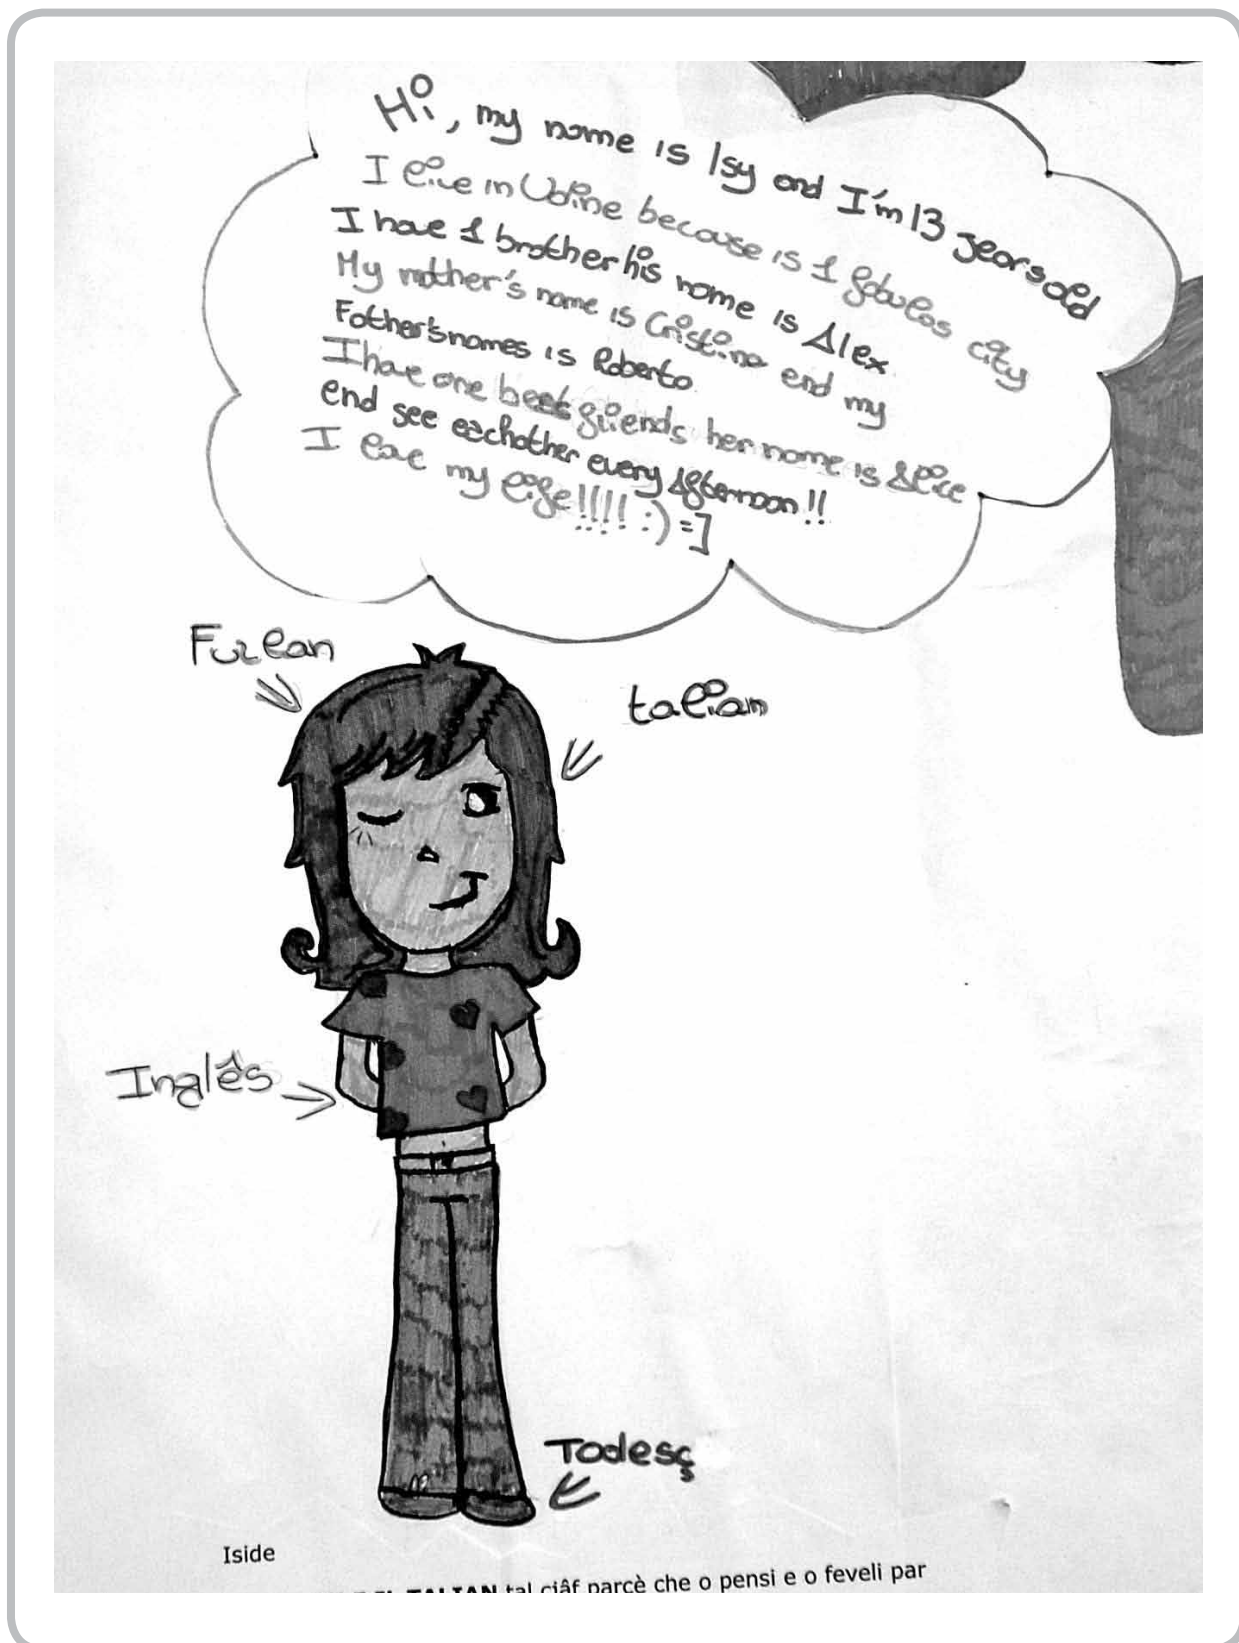 Hi, my name is Isy and I'm 13 years old
I live in Udine because is 1 fabulos city
I have 1 brother his name is Alex
My mother's name is Cristina end my
Father'snames is Roberto
I have one best friends her name is Alice
end see eachother every Afternoon!!
I love my life!!!! :) =]
Furlan
talian
Inglês
Todesç
Iside
TALIAN tal cjâf parcè che o pensi e o feveli par